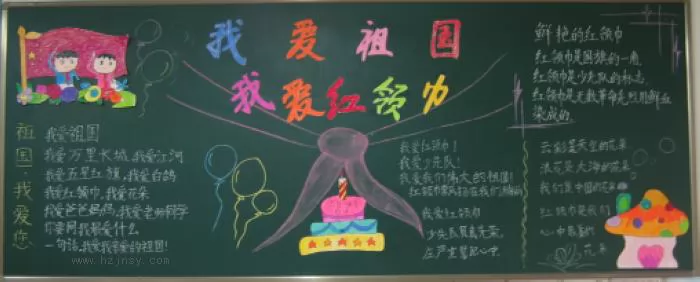 我爱祖国
我爱红领巾
祖国·我爱您
我爱祖国
我爱万里长城,我爱江河
我爱五星红旗,我爱白鸽
我爱红领巾,我爱花朵
我爱爸爸妈妈,我爱老师同学
你要问我最爱什么
一句话,我爱我亲爱的祖国!
我爱红领巾!
我爱少先队!
我爱我们伟大的祖国!
红领巾飘扬在我们胸前
我爱红领巾
少先队员真光荣
庄严誓记心中
鲜艳的红领巾
红领巾是国旗的一角
红领巾是少先队的标志
红领巾是无数革命先烈用鲜血
染成的.
云彩是天空的花朵
浪花是大海的花朵
我们是中国的花朵
红领巾是我们
心中最
花朵
www.hzjnsy.com